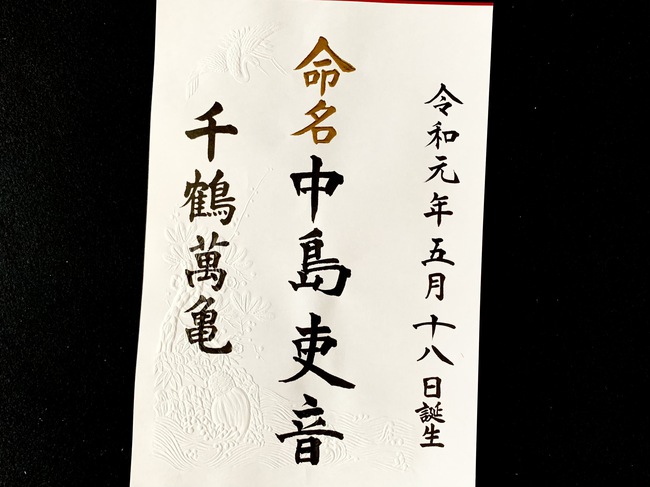 令和元年五月十八日誕生
命名
中島吏音
千鶴萬亀